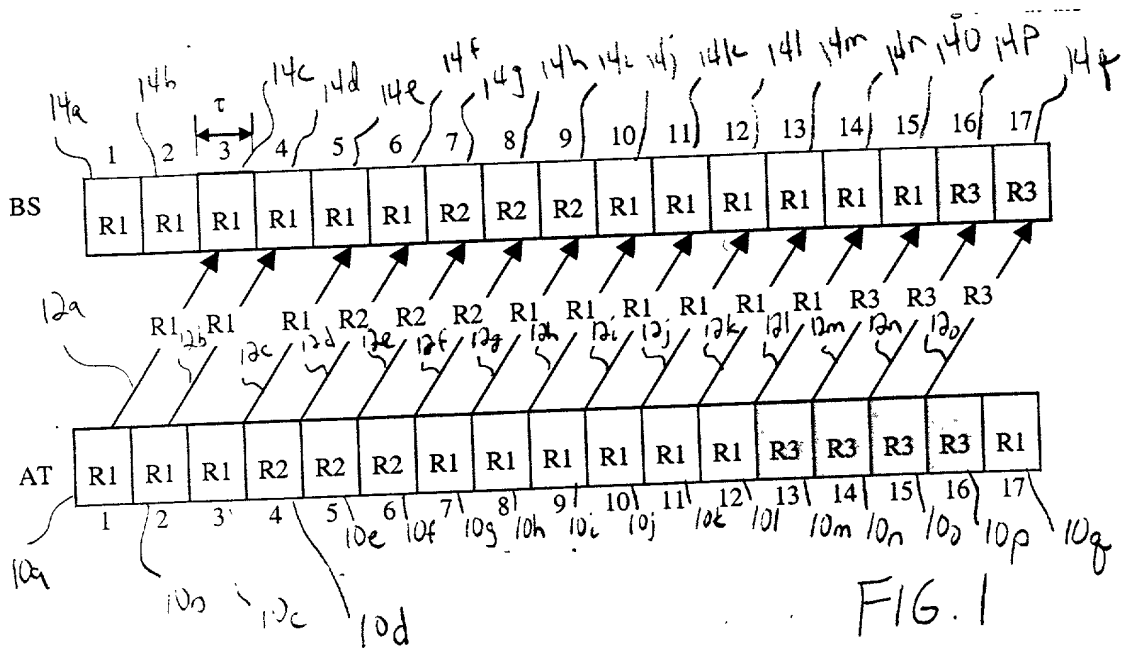 14a 14b 14c 14d 14e 14f 14g 14h 14i 14j 14k 14l 14m 14n 14o 14p 14q
τ
1 2 3 4 5 6 7 8 9 10 11 12 13 14 15 16 17
BS R1 R1 R1 R1 R1 R1 R2 R2 R2 R1 R1 R1 R1 R1 R1 R3 R3
12a
R1 R1 R1 R2 R2 R2 R1 R1 R1 R1 R1 R1 R3 R3 R3
12b 12c 12d 12e 12f 12g 12h 12i 12j 12k 12l 12m 12n 12o
AT R1 R1 R1 R2 R2 R2 R1 R1 R1 R1 R1 R1 R3 R3 R3 R3 R1
1 2 3 4 5 6 7 8 9 10 11 12 13 14 15 16 17
10a 10b 10c 10d 10e 10f 10g 10h 10i 10j 10k 10l 10m 10n 10o 10p 10q
FIG. 1